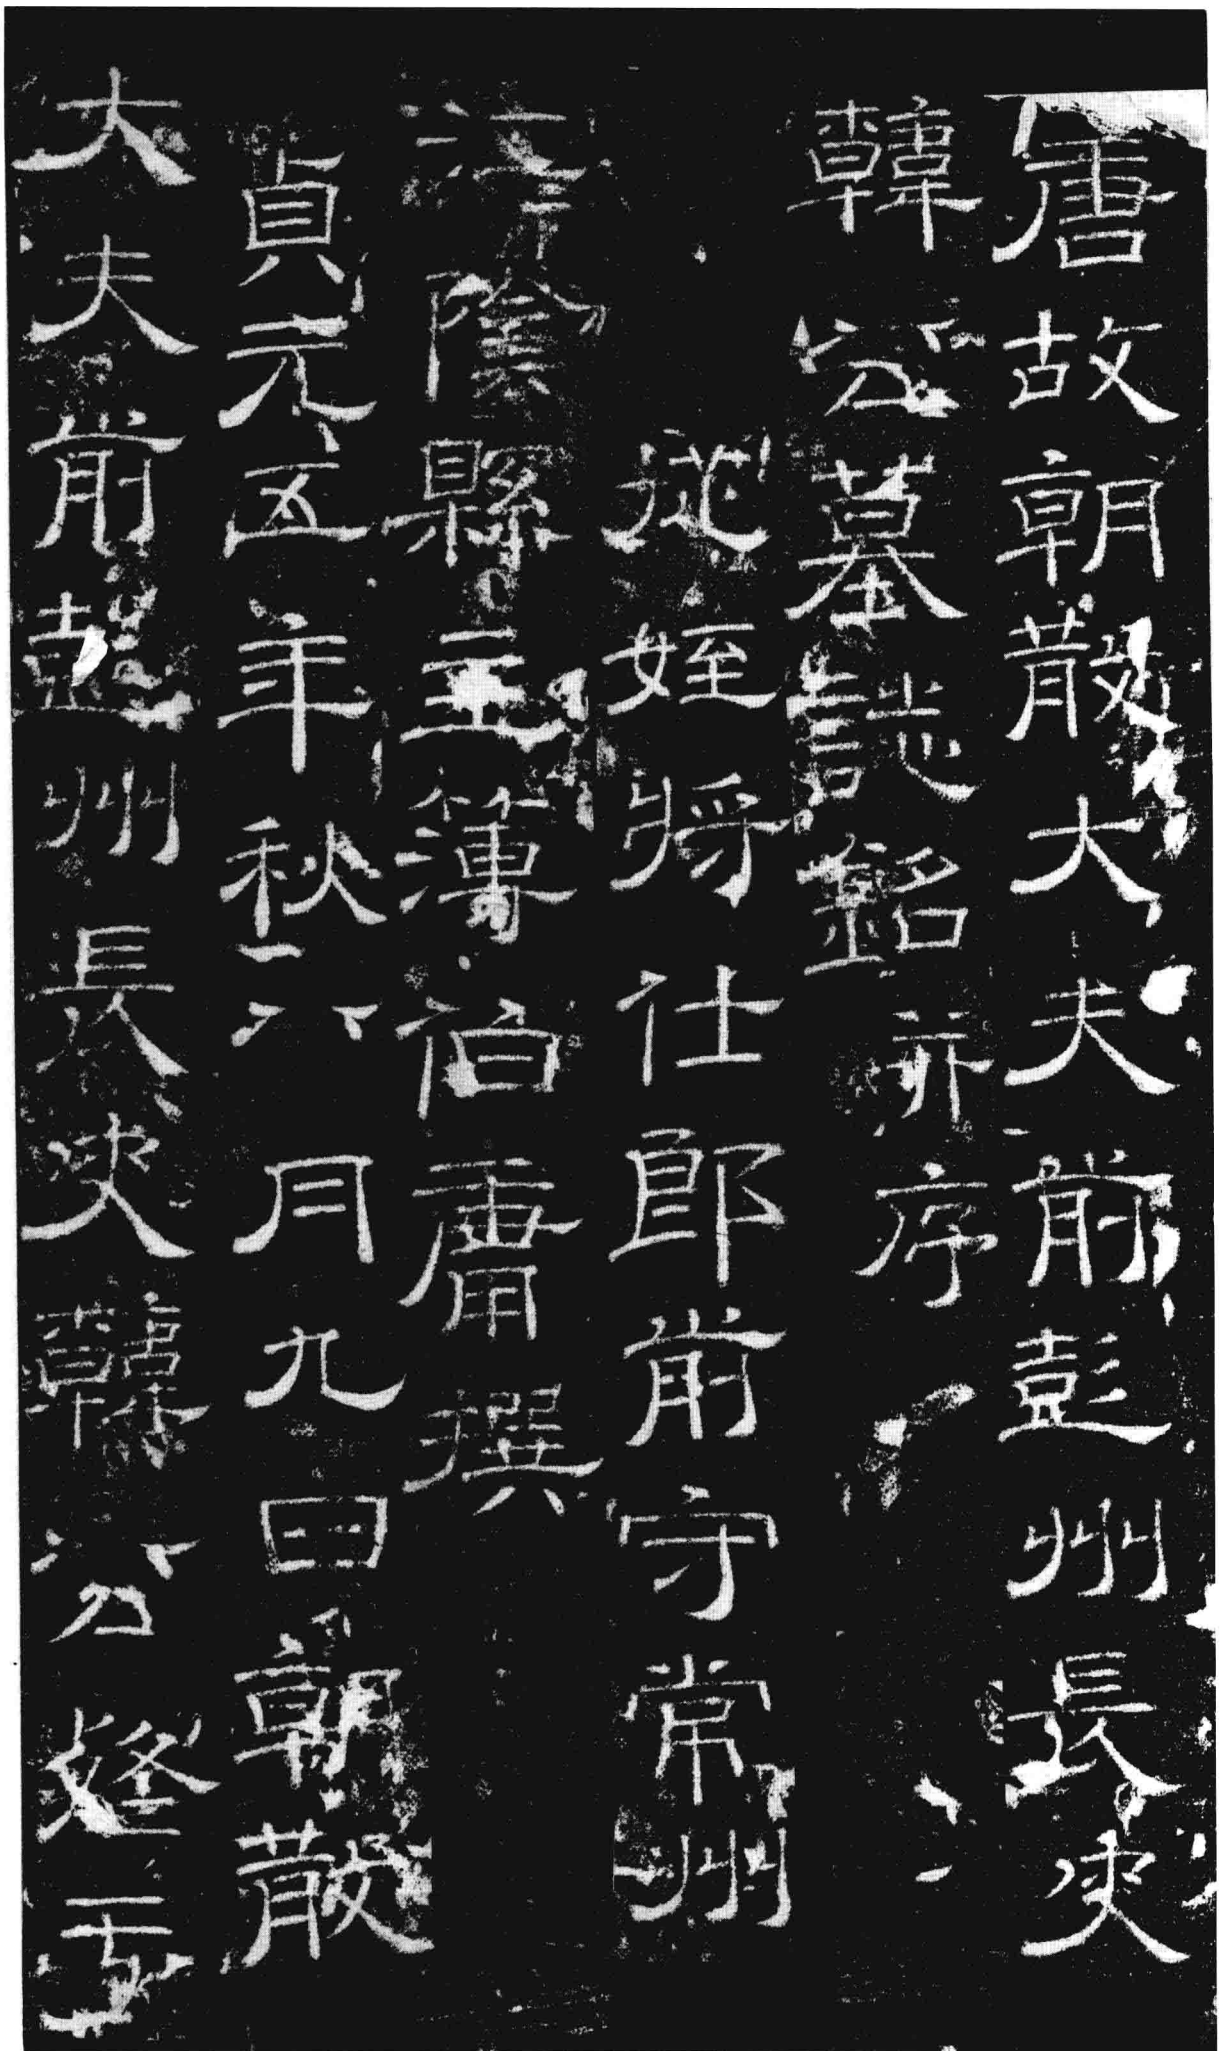 唐故朝散大夫前彭州長史
韓公墓誌銘并序
從姪將仕郎前守常州
江陰縣主簿伯庸撰
貞元五年秋八月九日朝散
大夫前彭州長史韓公㢠于